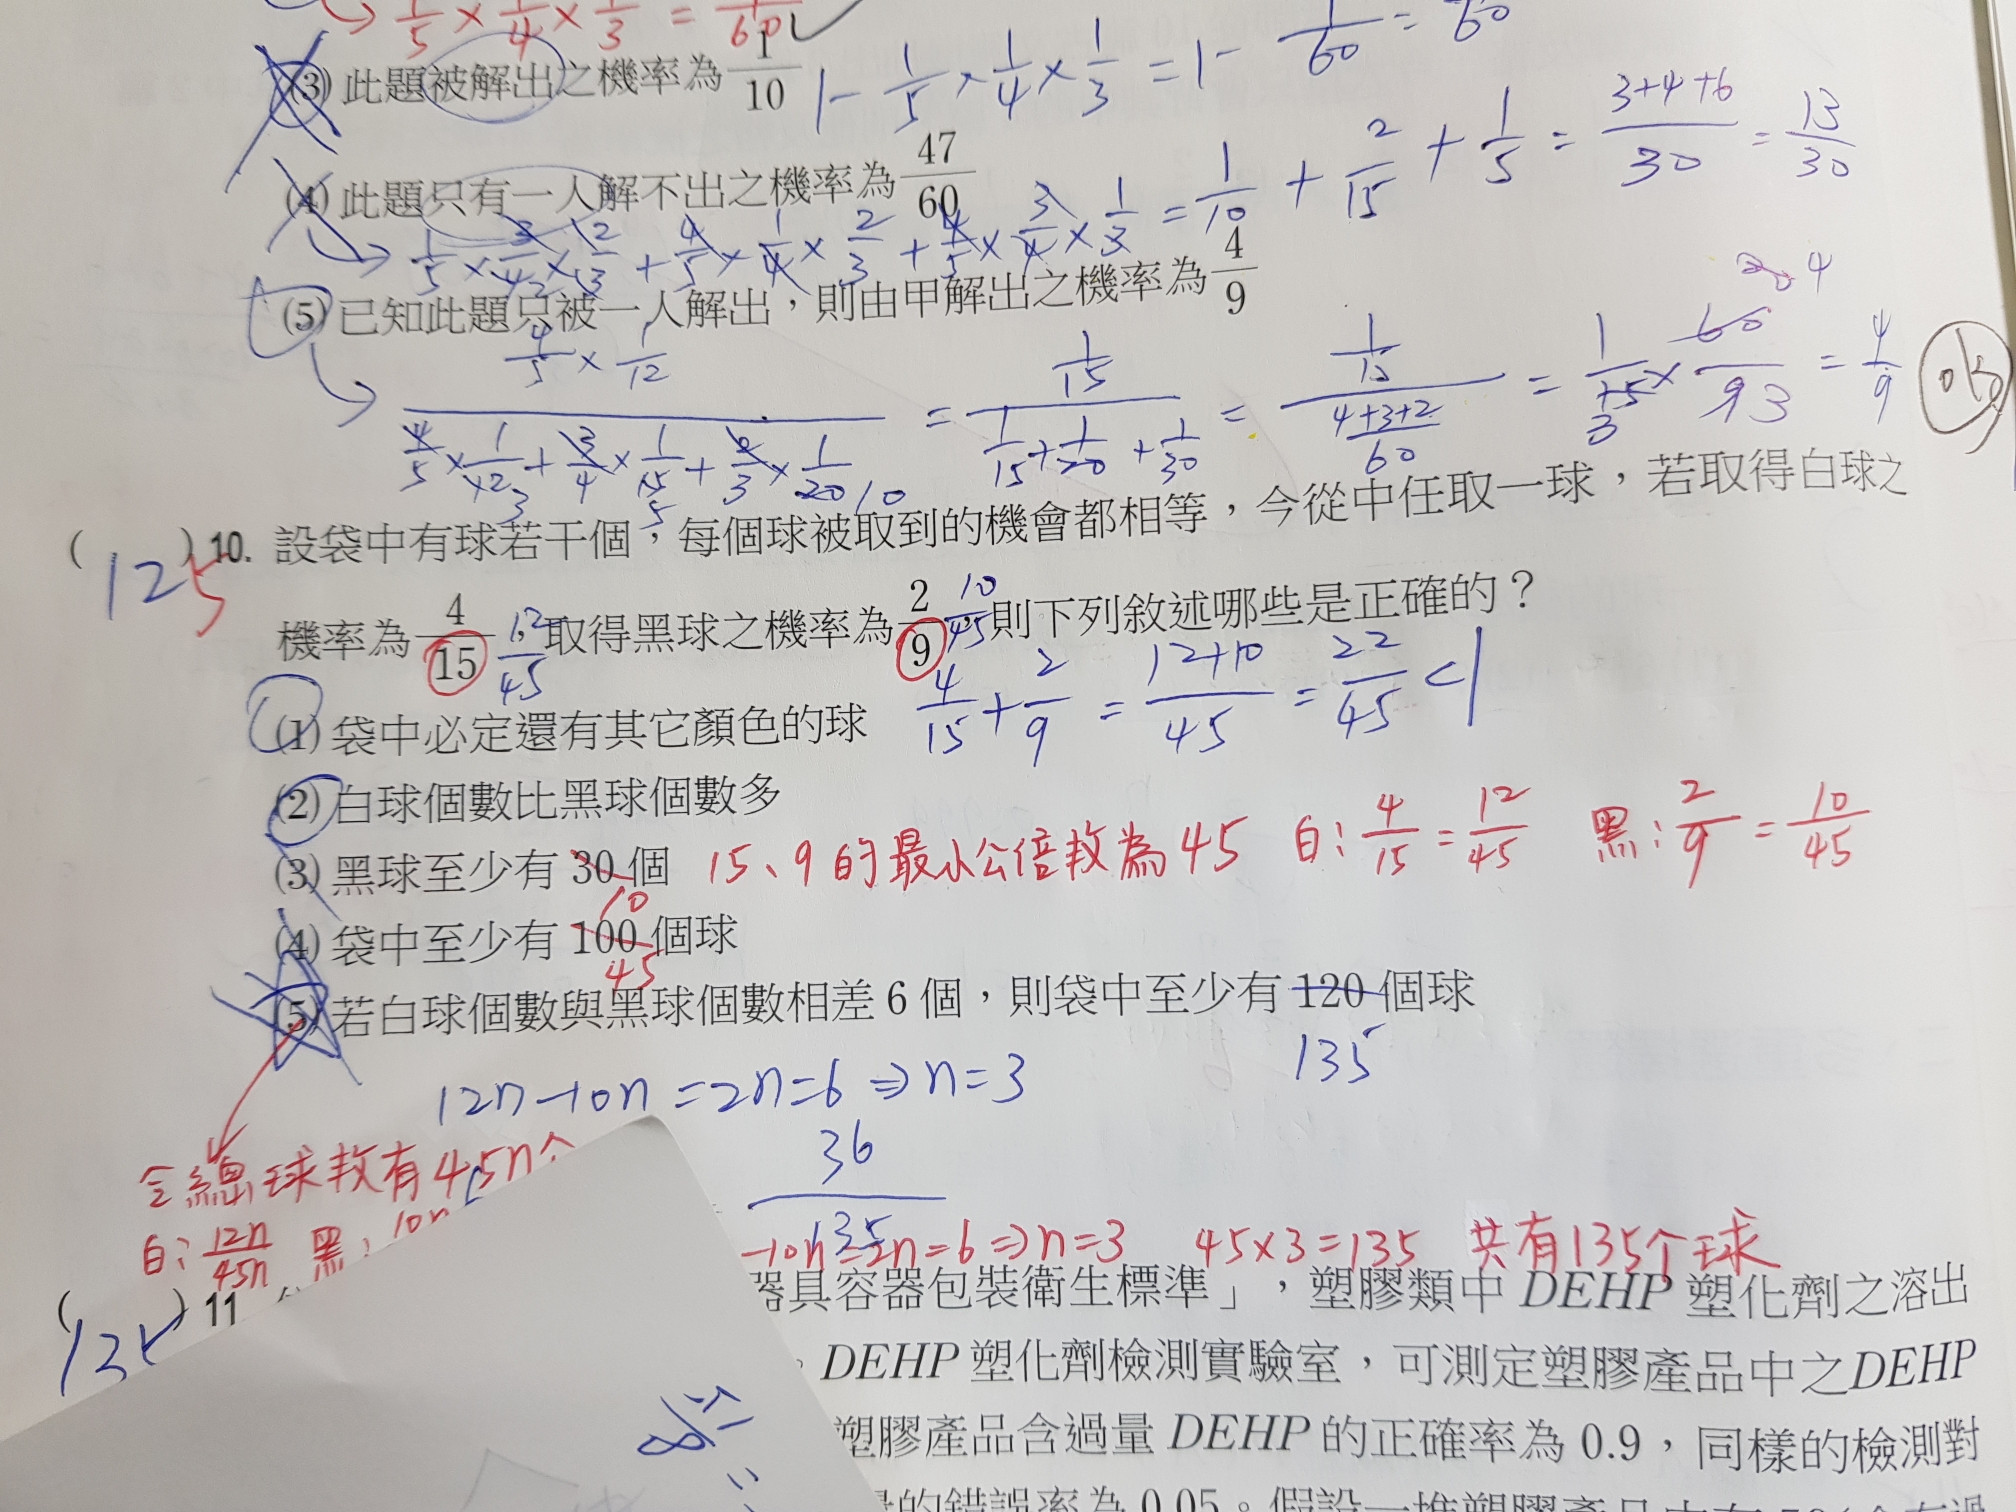 1/5 × 1/4 × 1/3 = 1/60
(3) 此題被解出之機率為 1/10 1 - 1/5 × 1/4 × 1/3 = 1 - 1/60 =
(4) 此題只有一人解不出之機率為 47/60
1/5 × 3/4 × 2/3 + 4/5 × 1/4 × 2/3 + 4/5 × 3/4 × 1/3 = 1/10 + 2/15 + 1/5 = 3+4+6/30 = 13/30
(5) 已知此題只被一人解出，則由甲解出之機率為 4/9
4/5 × 1/12
4/5 × 1/12 + 3/4 × 1/15 + 2/3 × 1/20 = 1/15 / 1/15 + 1/20 + 1/30 = 1/15 / 4+3+2/60 = 1/15 × 60/9 = 4/9 ok
(125) 10. 設袋中有球若干個，每個球被取到的機會都相等，今從中任取一球，若取得白球之
機率為 4/15 12/45，取得黑球之機率為 2/9 10/45，則下列敘述哪些是正確的？
(1) 袋中必定還有其它顏色的球 4/15 + 2/9 = 12+10/45 = 22/45 < 1
(2) 白球個數比黑球個數多
(3) 黑球至少有 30 個 15、9的最小公倍数為45 白：4/15 = 12/45 黑：2/9 = 10/45
10
(4) 袋中至少有 100 個球
45
(5) 若白球個數與黑球個數相差 6 個，則袋中至少有 120 個球
135
12n-10n=2n=6⇒n=3
36/135
令總球数有45n个
白：12n/45n 黑：10n
-10n=2n=6⇒n=3 45×3=135 共有135个球
( ) 11
器具容器包裝衛生標準」，塑膠類中 DEHP 塑化劑之溶出
。DEHP 塑化劑檢測實驗室，可測定塑膠產品中之DEHP
塑膠產品含過量 DEHP 的正確率為 0.9，同樣的檢測對
的錯誤率為 0.05。假設一堆塑膠產品中有